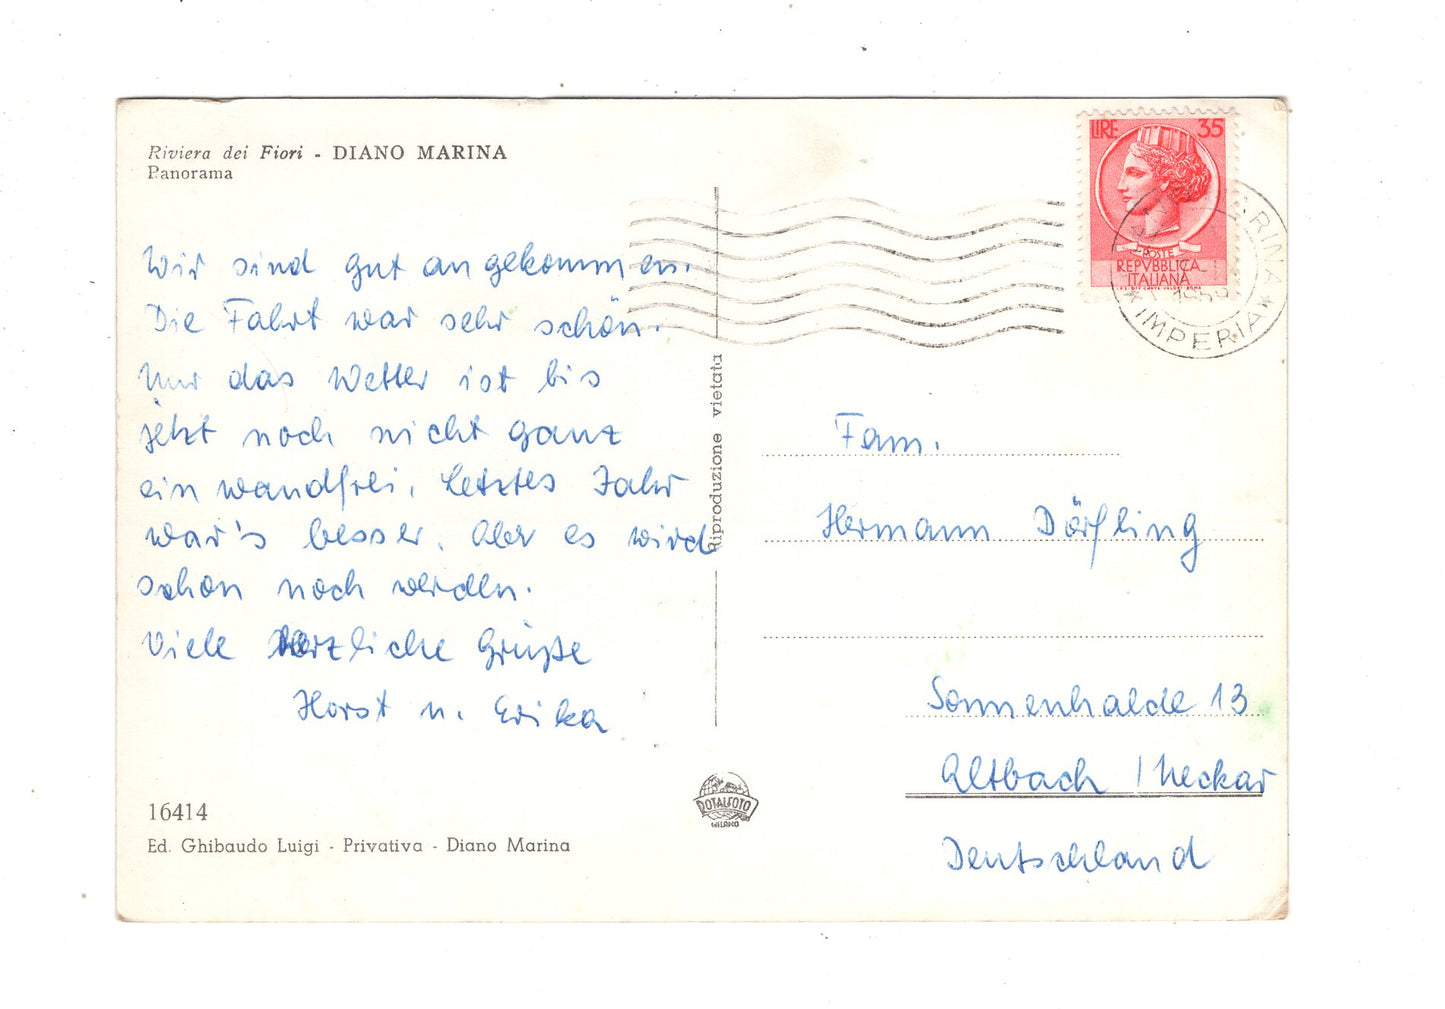 Riviera dei Fiori - DIANO MARINA
Panorama
Wir sind gut angekommen.
Die Fahrt war sehr schön.
Nur das Wetter ist bis
jetzt noch nicht ganz
einwandfrei. Letztes Jahr
war's besser. Aber es wird
schon noch werden.
Viele herzliche Grüße
Horst u. Erika
16414
Ed. Ghibaudo Luigi - Privativa - Diano Marina
Riproduzione vietata
DOTALFOTO
MILANO
LIRE 35
POSTE
REPVBBLICA
ITALIANA
MARINA
1959
*IMPERIA*
Fam.
Hermann Dörfling
Sonnenhalde 13
Altbach / Neckar
Deutschland